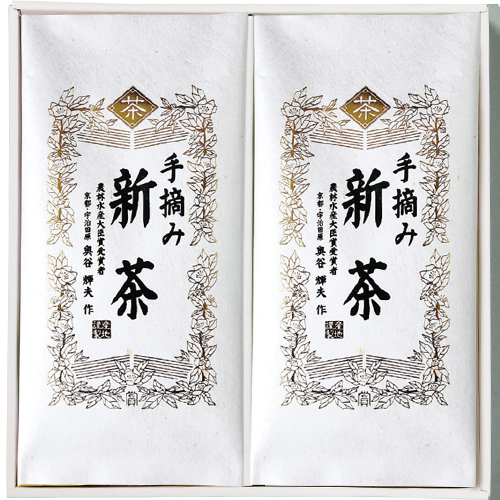 茶
手摘み
新茶
農林水産大臣賞受賞者
京都・宇治田原 奥谷 輝夫 作
産地謹製
賞
茶
手摘み
新茶
農林水産大臣賞受賞者
京都・宇治田原 奥谷 輝夫 作
産地謹製
賞